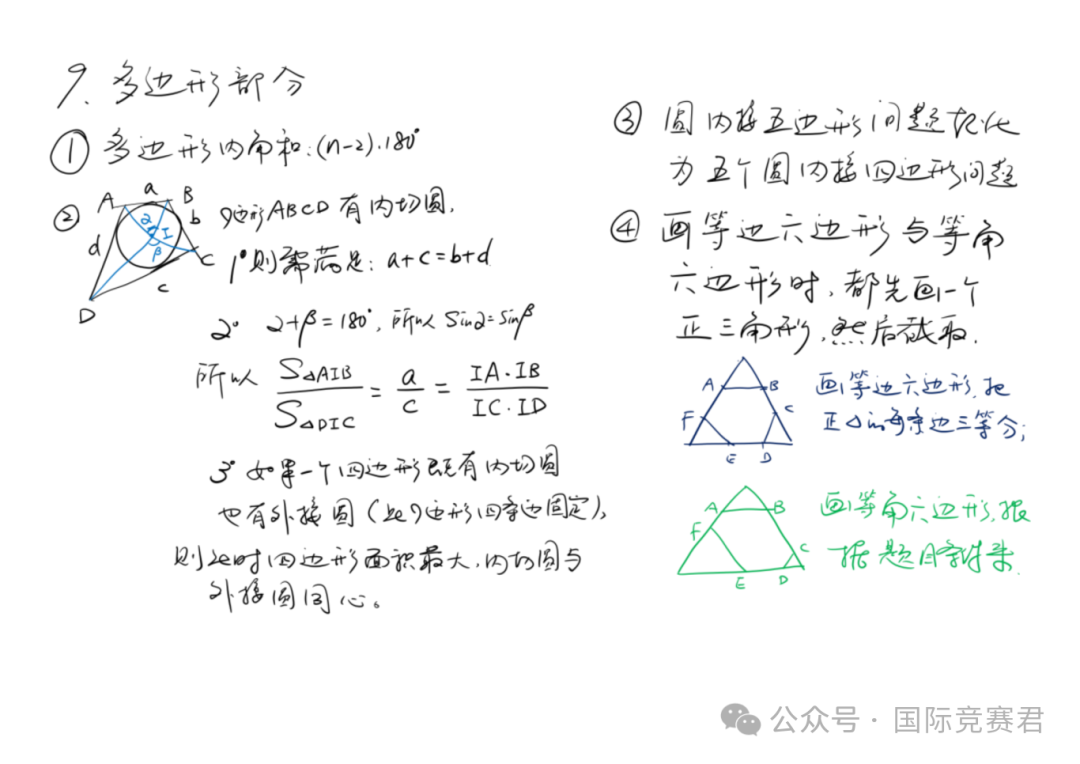 9. 多边形部分
① 多边形内角和:(n-2)·180°
② 4边形ABCD有内切圆,
A a B b C c D d I α β
1° 则需满足: a+c=b+d
2° α+β=180°, 所以 Sinα=Sinβ
所以 S△AIB / S△DIC = a/c = IA·IB / IC·ID
3° 如果一个四边形既有内切圆
也有外接圆(此4边形四条边固定),
则此时四边形面积最大,内切圆与
外接圆同心。
③ 圆内接五边形问题转化
为五个圆内接四边形问题
④ 画等边六边形与等角
六边形时,都先画一个
正三角形,然后截取.
A B C D E F
画等边六边形,把
正△的每条边三等分;
A B C D E F
画等角六边形,根
据题目条件来.
公众号·国际竞赛君